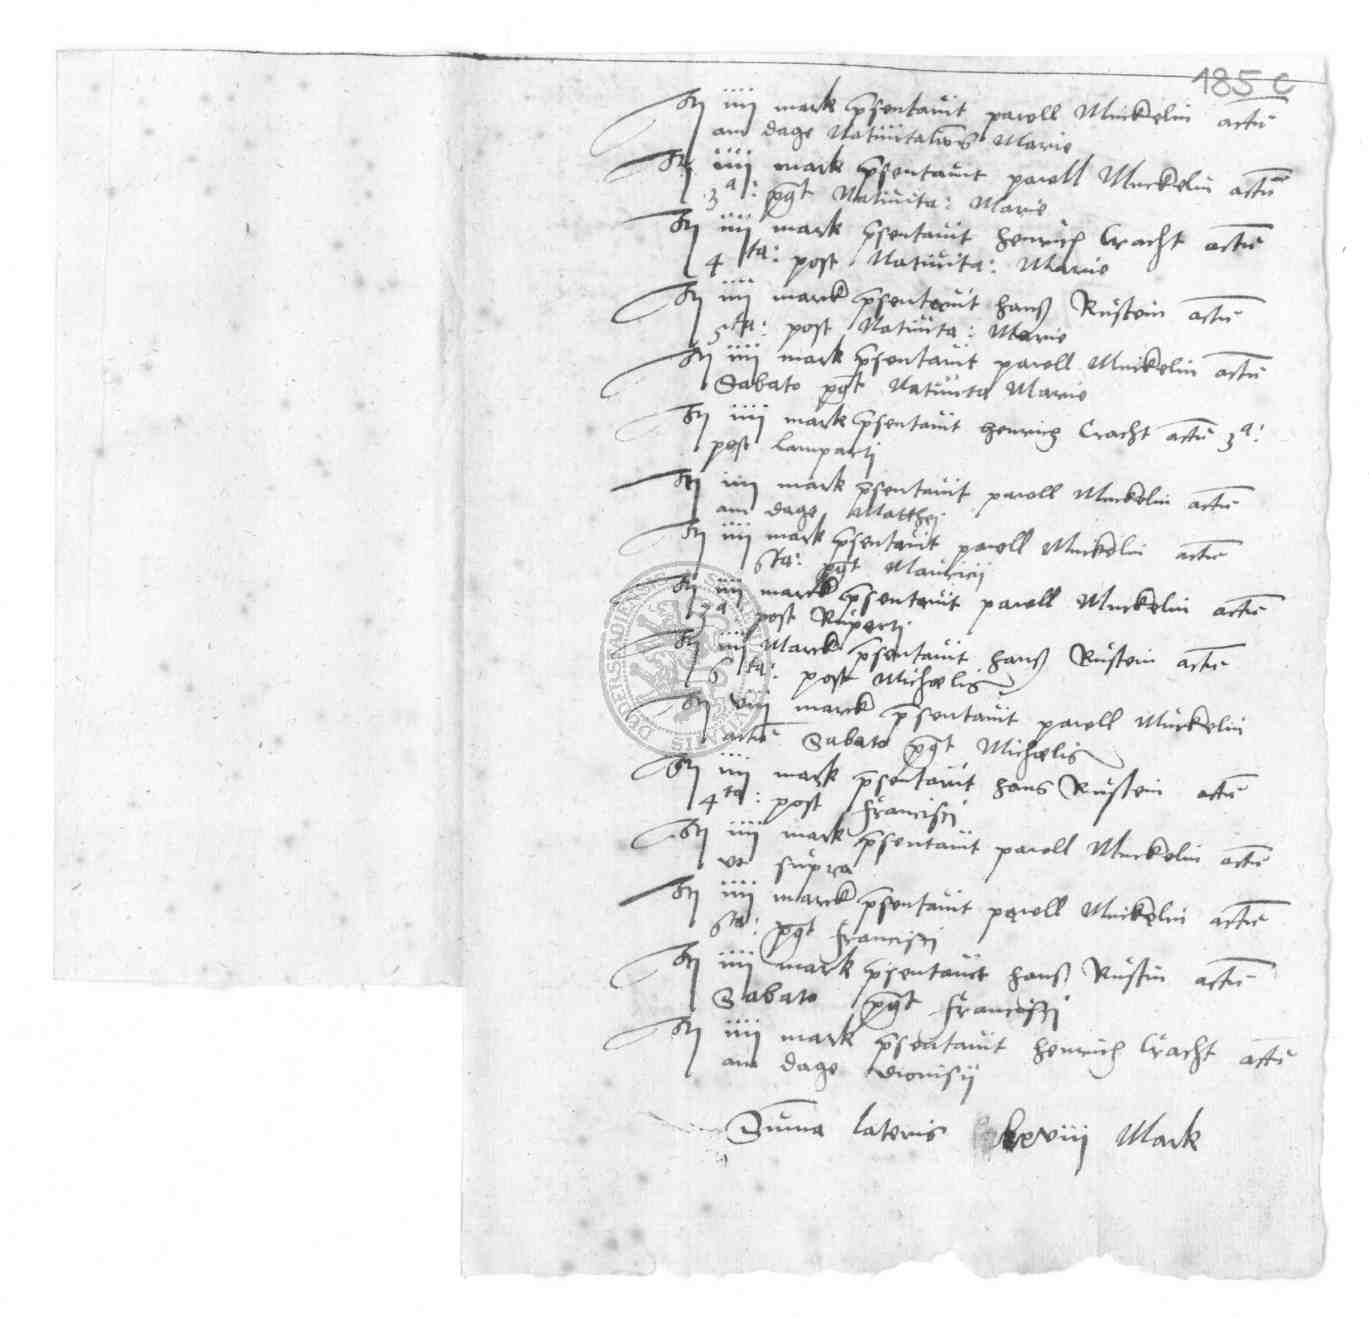 185 C
It iiii mark p̄sentauit pawell Muckelin actū
am dage Natiuitatis Marie
It iiii mark p̄sentauit pawell Muckelin actū
3ª: post Natiuita: Marie
It iiii mark p̄sentauit Henrich Cracht actū
4ta: post Natiuita: Marie
It iiii marck p̄sentauit Hanß Rustein actū
5ta: post Natiuita: Marie
It iiii mark p̄sentauit pawell Muckelin actū
Sabato post Natiuita Marie
It iiii mark p̄sentauit Henrich Cracht actū 3ª:
post Lamparti
It iiii mark p̄sentauit pawell Muckelin actū
am dage Matthei
It iiii mark p̄sentauit pawell Muckelin actū
6ta: post Mauricij
It iiii marck p̄sentauit pawell Muckelin actū
3ª post Ruperti
It iiii Marck p̄sentauit Hanß Rustein actū
6ta: post Michaelis
It viii marck p̄sentauit pawell Muckelin
actū Sabato post Michaelis
It iiii mark p̄sentauit Hans Rustein actū
4ta: post Francisci
It iiii mark p̄sentauit pawell Muckelin actū
vt supra
It iiii marck p̄sentauit pawell Muckelin actū
6ta: post Francisci
It iiii mark p̄sentauit Hanß Rustin actū
Sabato post Francisci
It iiii mark p̄sentauit Henrich Cracht actū
am dage Dionisij
Sum̄a lateris lxviii Mark